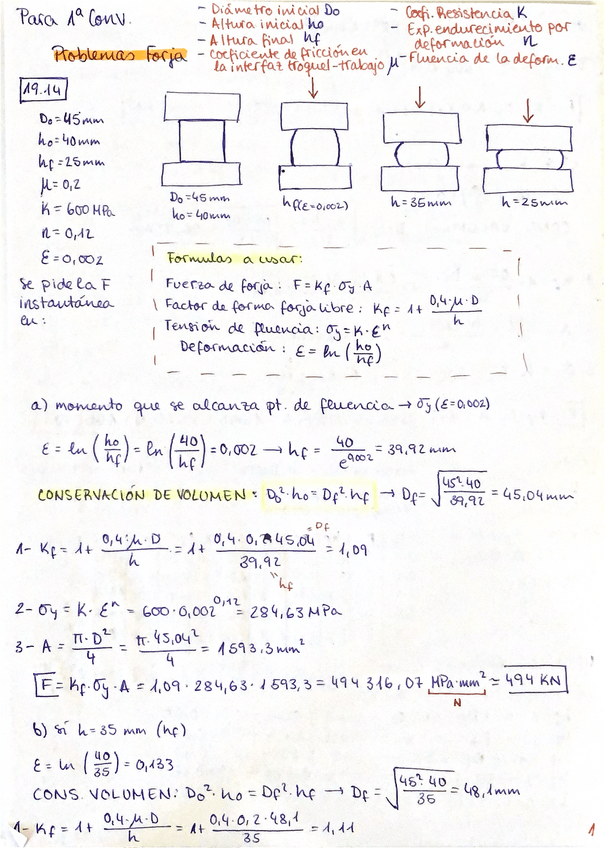 Para 1ª Conv.
Problemas Forja
- Diámetro inicial Do
- Altura inicial ho
- Altura final hf
- Coeficiente de fricción en
la interfaz troquel-trabajo μ
- Coefi. Resistencia K
- Exp. endurecimiento por
deformación n
- Fluencia de la deform. ε
19.14
Do = 45 mm
ho = 40 mm
hf = 25 mm
μ = 0,2
K = 600 MPa
n = 0,12
ε = 0,002
se pide la F
instantánea
en:
Do = 45 mm
ho = 40 mm
hf(ε=0,002)
h = 35 mm
h = 25 mm
Formulas a usar:
Fuerza de forja: F = Kf · σy · A
Factor de forma forja libre: Kf = 1 + 0,4·μ·D / h
Tensión de fluencia: σy = K · εⁿ
Deformación: ε = ln (ho/hf)
a) momento que se alcanza pt. de fluencia → σy (ε=0,002)
ε = ln (ho/hf) = ln (40/hf) = 0,002 → hf = 40/e^0,002 = 39,92 mm
CONSERVACIÓN DE VOLUMEN: Do²·ho = Df²·hf → Df = √(45²·40/39,92) = 45,04 mm
1- Kf = 1 + 0,4·μ·D / h = 1 + 0,4·0,2·45,04 / 39,92 = 1,09
= Df
"hf
2- σy = K · εⁿ = 600 · 0,002^0,12 = 284,63 MPa
3- A = π·D²/4 = π·45,04²/4 = 1593,3 mm²
F = Kf · σy · A = 1,09 · 284,63 · 1593,3 = 494 316,07 MPa·mm² ≈ 494 KN
N
b) si h = 35 mm (hf)
ε = ln (40/35) = 0,133
CONS. VOLUMEN: Do²·ho = Df²·hf → Df = √(45²·40/35) = 48,1 mm
1- Kf = 1 + 0,4·μ·D / h = 1 + 0,4·0,2·48,1 / 35 = 1,11
1